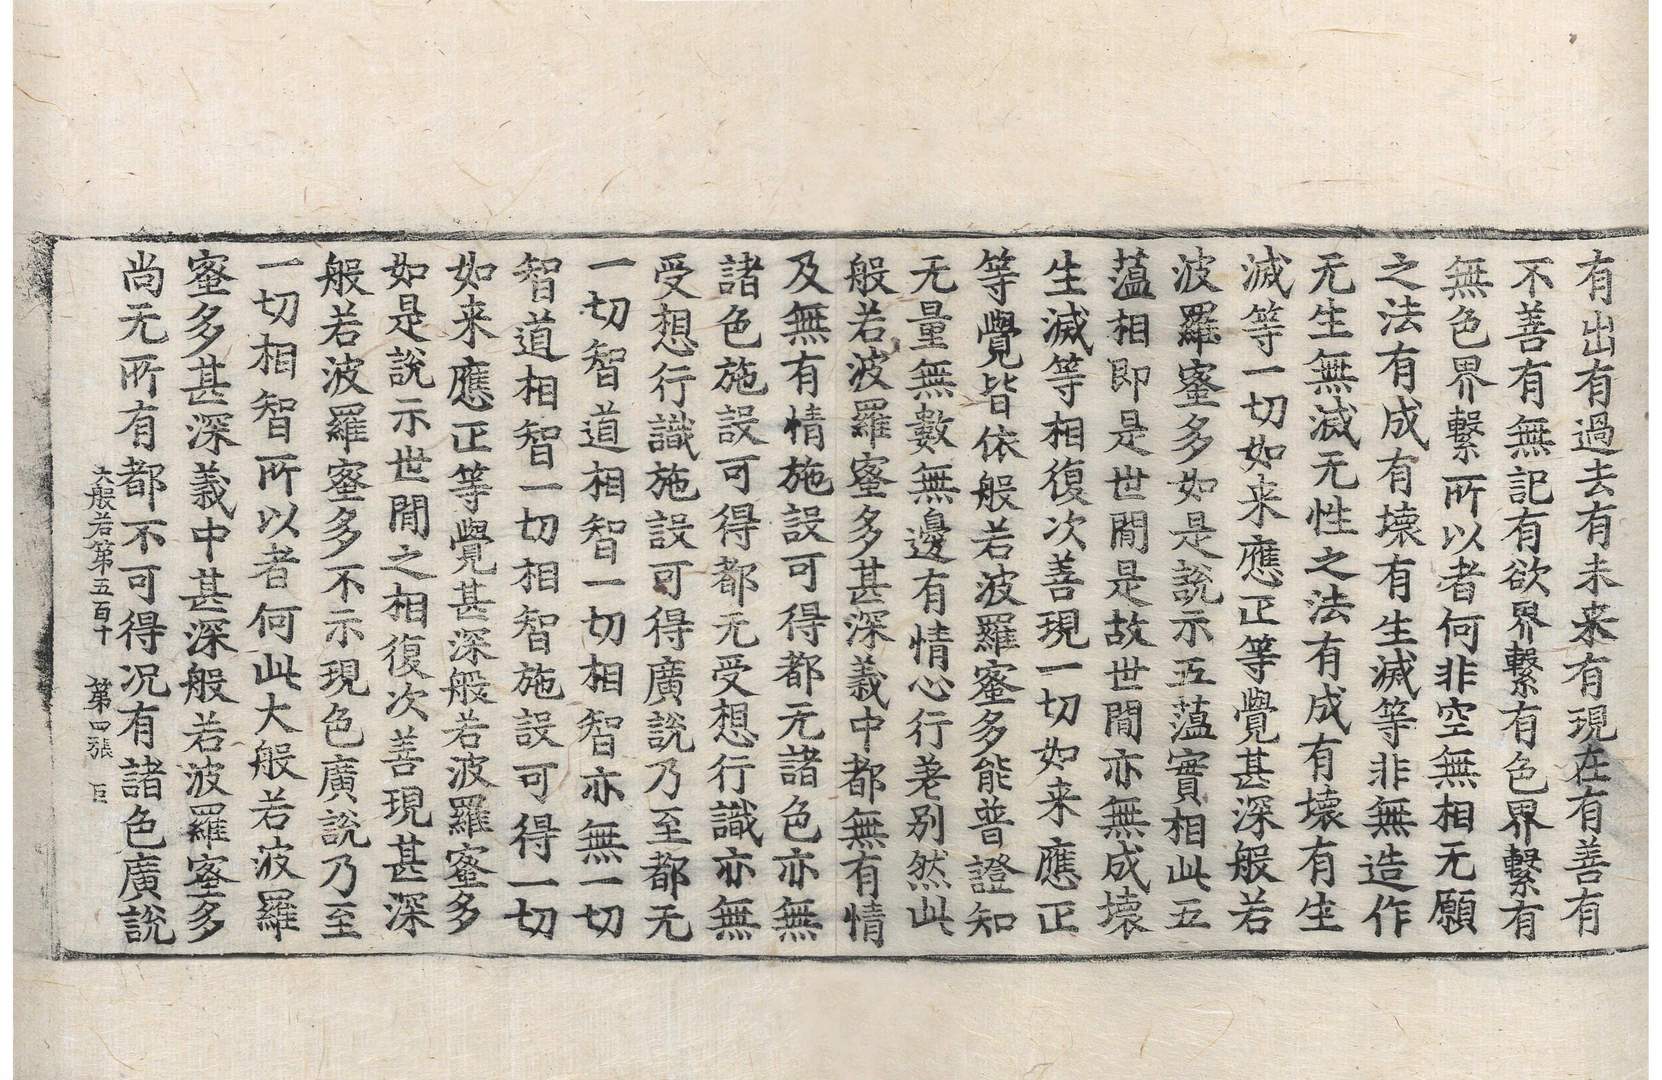 有出有過去有未来有現在有善有
不善有無記有欲界繫有色界繫有
無色界繫所以者何非空無相无願
之法有成有壞有生滅等非無造作
无生無滅无性之法有成有壞有生
滅等一切如来應正等覺甚深般若
波羅蜜多如是說示五薀實相此五
薀相即是世閒是故世閒亦無成壞
生滅等相復次善現一切如来應正
等覺皆依般若波羅蜜多能普證知
无量無數無邊有情心行差別然此
般若波羅蜜多甚深義中都無有情
及無有情施設可得都无諸色亦無
諸色施設可得都无受想行識亦無
受想行識施設可得廣說乃至都无
一切智道相智一切相智亦無一切
智道相智一切相智施設可得一切
如来應正等覺甚深般若波羅蜜多
如是說示世閒之相復次善現甚深
般若波羅蜜多不示現色廣說乃至
一切相智所以者何此大般若波羅
蜜多甚深義中甚深般若波羅蜜多
尚无所有都不可得况有諸色廣說
大般若第五百十 第四張 巨